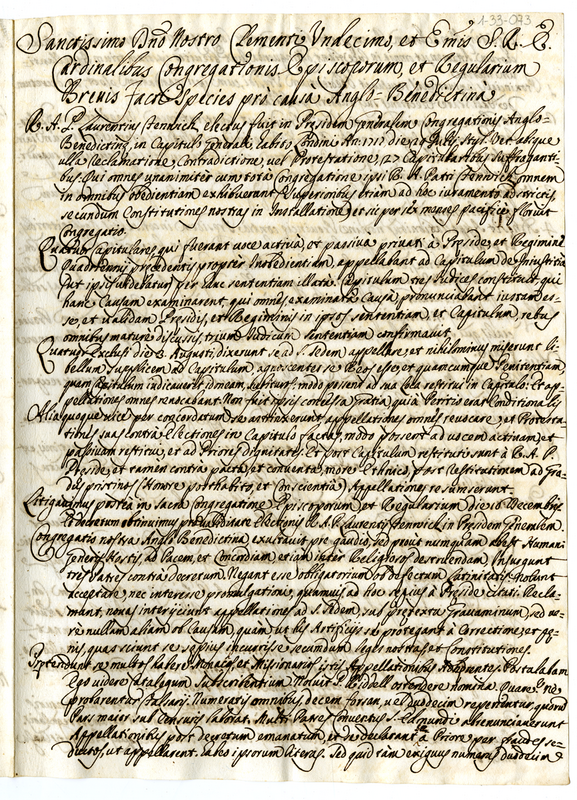 1-33-073
Sanctissimo Dno Nostro Clementi Undecimo, et Emis S. R. E.
Cardinalibus Congregationis Episcoporum, et Regularium
Brevis Facti Species pro causâ Anglo-Benedictinâ
R. A. P. Laurentius Fenwick electus fuit in Præsidem Generalem Congregationis Anglo-
Benedictinæ, in Capitulo Generali habito Londini An. 1717 die Julij, Styl. Vet. absque
ulla Reclamatione, Contradictione, vel Protestatione, Capitularibus suffraganti-
bus. Qui omnes unanimiter cum totâ Congregatione ipsi R. A. Patri Fenwick omnem
in omnibus obedientiam exhibuerunt, Superioribus etiam ad hoc iuramento adstrictis,
secundum Constitutiones nostras in Installatione, et sic per sex menses pacifice floruit
Congregatio.
Quatuor Capitulares qui fuerant voce activâ, et passivâ privati à Præside, et Regimine
Quadriennij præcedentis propter Inobedientiam, appellabant ad Capitulum de Iniustitiâ
quæ ipsis videbatur per hanc sententiam illata. Capitulum tres Judices constituit, qui
hanc Causam examinarent, qui omnes, examinatâ Causâ, pronunciabant iustam es-
se, et validam Præsidis, et Regiminis in ipsos sententiam, et Capitulum, rebus
omnibus mature discussis, trium Judicum sententiam confirmavit.
Quatuor Exclusi die 3 Augusti dixerunt se ad S. Sedem appellare, et nihilominus miserunt Li-
bellum supplicem ad Capitulum, agnoscentes se Reos esse, et quamcumque Pœnitentiam,
quam Capitulum indicaverit idoneam, subituros, modo possent ad sua loca restitui in Capitulo: Et ap-
pellationes omnes revocabant. Non fuit ipsis concessa Gratia, quia Petitio erat Conditionalis
Aliâ quoque vice per concordatum se astrinxerunt appellationes omnes revocare, et Protesta-
tiones suas contra Electiones in Capitulo factas, modo possent ad vocem activam, et
passivam restitui, et ad Priores dignitates. Et post Capitulum restituti sunt à R. A. P.
Præside, et tamen contra pacta, et conventa, more Ethnico, post Restitutionem ad Gra-
dus pristinos, Honore posthabito, et Conscientiâ, Appellationes resumserunt.
Litigavimus posteà in Sacra Congregatione Episcoporum et Regularium die 16 Decembris
et decretum obtinuimus pro validitate Electionis R. A. P. Laurentij Fenwick in Præsidem Generalem.
Congregatio nostra Anglo-Benedictina exultavit præ gaudio, sed prout numquam abest Humani
Generis Hostis, ad Pacem, et Concordiam etiam inter Religiosos destruendam. Insurgunt
tres Patres contra decretum. Negant esse obligatorium ob defectum Latinitatis. Nolunt
acceptare, nec interesse promulgationi, quamvis ad hoc sæpius à Præside citati. Recla-
mant, novas interijciunt appellationes ad S. Sedem, sub prætextu Gravaminum, sed ve-
rè nullam aliam ob Causam, quàm ut his Artificijs se protegant à Correctione, et pœ-
nis, quas sciunt se sæpius incurrisse secundum leges nostras, et Constitutiones.
Prætendunt se multos habere Monachos, et Missionarios istis Appellationibus Adhærentes. Postulabam
Ego videre Catalogum Subscribentium. Noluit P. ostendere nomina. Quare? Ne
probarentur Falsarij. Numeratis omnibus, decem forsan, vel duodecim reperiuntur, quorum
Pars maior sub Censuris laborat. Multi Patres Conventus S. Edmundi abrenunciaverunt
Appellationibus post decretum emanatum, et declarant se à Priore per fraudes se-
ductos, ut appellarent. habeo ipsorum literas. Sed quid tam exiguus numerus duodecim